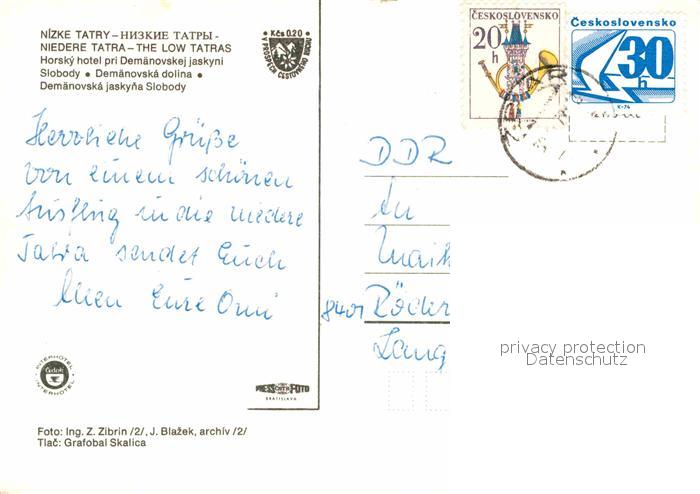 NÍZKE TATRY – НИЗКИЕ ТАТРЫ -
NIEDERE TATRA – THE LOW TATRAS
Horský hotel pri Demänovskej jaskyni
Slobody • Demänovská dolina •
Demänovská jaskyňa Slobody
Kčs 0.20
V PROSPECH CESTOVNÉHO RUCHU
ČESKOSLOVENSKO
20 h
Československo
30 h
Herzliche Grüße
von einem schönen
Ausflug in die niedere
Tatra sendet Euch
Eure Omi
DDR
An
Maik
8401 Röder
Lang
INTERHOTEL
Čedok
INTERHOTEL
PRESSFOTO
BRATISLAVA
privacy protection
Datenschutz
Foto: Ing. Z. Zibrin /2/, J. Blažek, archív /2/
Tlač: Grafobal Skalica